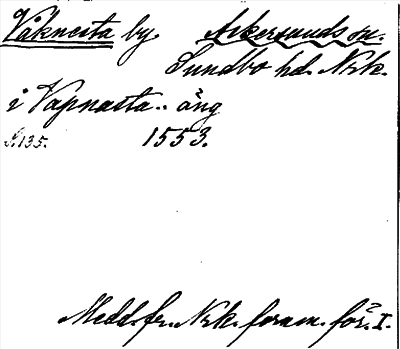 Våknesta by. Askersunds sn.
Sundbo hd. Nrk.
i Vapnasta.. äng
S. 135. 1553.
Medd. fr. Nrk. fornm. för. I.